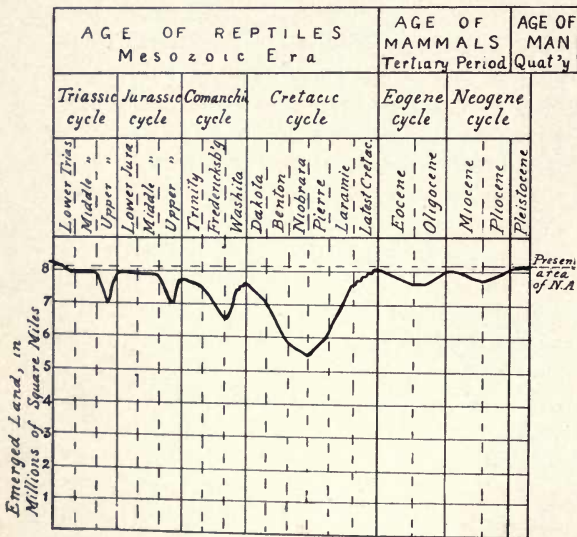 AGE OF REPTILES
Mesozoic Era
AGE OF
MAMMALS
Tertiary Period
AGE OF
MAN
Quat'y
Triassic
cycle
Jurassic
cycle
Comanchi
cycle
Cretacic
cycle
Eogene
cycle
Neogene
cycle
Lower Trias
Middle "
Upper "
Lower Jura
Middle "
Upper "
Trinity
Fredericksb'g
Washita
Dakota
Benton
Niobrara
Pierre
Laramie
Latest Cretac.
Eocene
Oligocene
Miocene
Pliocene
Pleistocene
Present
area
of N.A
Emerged Land, in
Millions of Square Miles
8
7
6
5
4
3
2
1